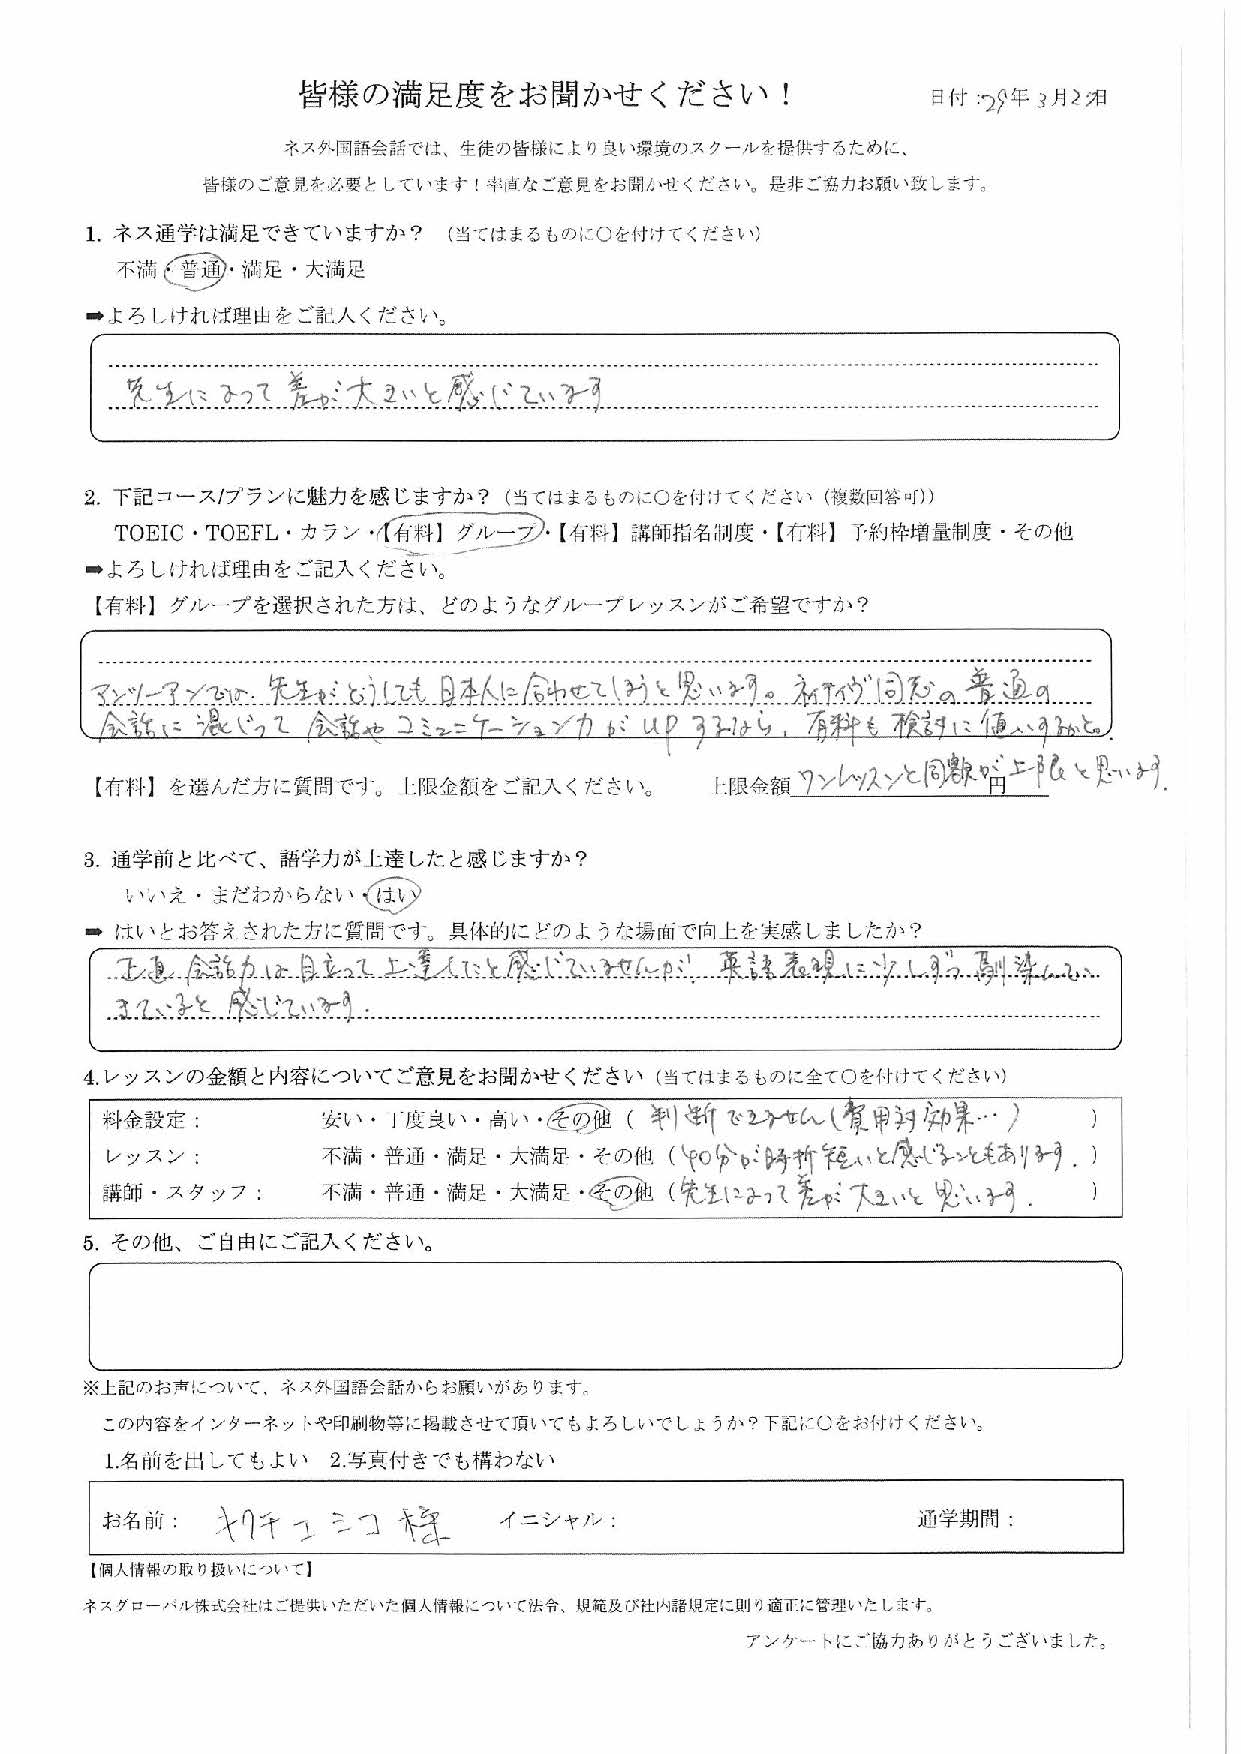 皆様の満足度をお聞かせください！
日付：29年3月25日
ネス外国語会話では、生徒の皆様により良い環境のスクールを提供するために、
皆様のご意見を必要としています！率直なご意見をお聞かせください。是非ご協力お願い致します。
1. ネス通学は満足できていますか？ （当てはまるものに〇を付けてください）
不満・普通・満足・大満足
➡よろしければ理由をご記入ください。
先生によって差が大きいと感じています
2. 下記コース/プランに魅力を感じますか？（当てはまるものに〇を付けてください（複数回答可））
TOEIC・TOEFL・カラン・【有料】グループ・【有料】講師指名制度・【有料】予約枠増量制度・その他
➡よろしければ理由をご記入ください。
【有料】グループを選択された方は、どのようなグループレッスンがご希望ですか？
マンツーマンでは、先生がどうしても日本人に合わせてしまうと思います。ネイティヴ同志の普通の
会話に混じって会話やコミュニケーション力がUPするなら、有料も検討に値いするかと。
【有料】を選んだ方に質問です。上限金額をご記入ください。 上限金額 ワンレッスンと同額が上限と思います. 円
3. 通学前と比べて、語学力が上達したと感じますか？
いいえ・まだわからない・はい
➡ はいとお答えされた方に質問です。具体的にどのような場面で向上を実感しましたか？
正直 会話力は目立って上達したと感じていませんが、英語表現に少しずつ馴染んで
きていると感じています.
4.レッスンの金額と内容についてご意見をお聞かせください（当てはまるものに全て〇を付けてください）
料金設定： 安い・丁度良い・高い・その他（ 判断できません(費用対効果…) ）
レッスン： 不満・普通・満足・大満足・その他（40分が時折短いと感じることもあります.）
講師・スタッフ： 不満・普通・満足・大満足・その他（先生によって差が大きいと思います. ）
5. その他、ご自由にご記入ください。
※上記のお声について、ネス外国語会話からお願いがあります。
この内容をインターネットや印刷物等に掲載させて頂いてもよろしいでしょうか？下記に〇をお付けください。
1.名前を出してもよい 2.写真付きでも構わない
お名前： キクチユミコ様 イニシャル： 通学期間：
【個人情報の取り扱いについて】
ネスグローバル株式会社はご提供いただいた個人情報について法令、規範及び社内諸規定に則り適正に管理いたします。
アンケートにご協力ありがとうございました。